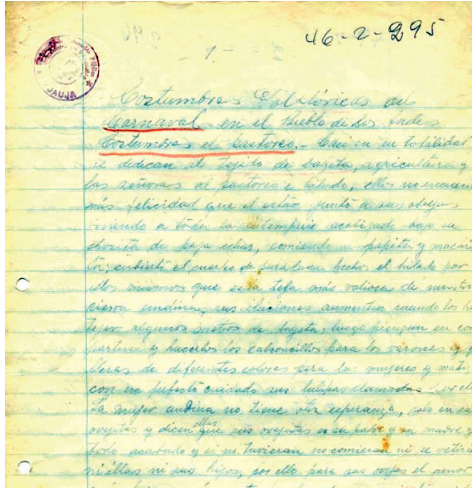 46-2-295
-1-
JAUJA
Costumbres Folklóricas del
Carnaval en el Pueblo de Los Andes
Costumbres el Pastoreo.- Casi en su totalidad
se dedican al tejido de bayeta, agricultura y
las señoras al pastoreo e hilado, ellos no
más felicidad que el estar junto a sus ovejas
viviendo a toda la intemperie acobijado bajo su
chosita de paja ichu, comiendo su papita y
cubierto el cuerpo de hecho el hilado por
ellos mismos que es la tela más valiosa de nuestra
sierra andina, sus ilaciones aumentan cuando los
tejer algunos metros de bayeta, luego piensan en
y hacerlos los calzoncillos para los varones y
de diferentes colores para las mujeres y
con su cuidado sus llamadas
La mujer andina no tiene otra esperanza, solo en sus
ovejitas y dicen que sus ovejitas es su padre y su madre y
todo acabado y si no tuvieran no comieran ni se
ni ellas ni sus hijos, por ello para sus ovejas el